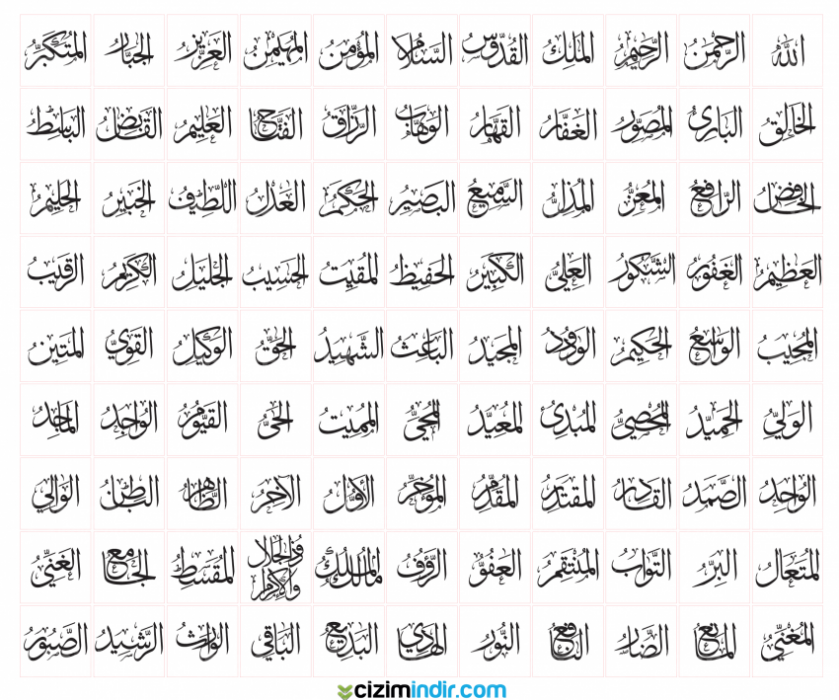 اللهُ الرَّحْمٰنُ الرَّحِيمُ المَلِكُ القُدُّوسُ السَّلَامُ المُؤْمِنُ المُهَيْمِنُ العَزِيزُ الجَبَّارُ المُتَكَبِّرُ
الخَالِقُ البَارِئُ المُصَوِّرُ الغَفَّارُ القَهَّارُ الوَهَّابُ الرَّزَّاقُ الفَتَّاحُ العَلِيمُ القَابِضُ البَاسِطُ
الخَافِضُ الرَّافِعُ المُعِزُّ المُذِلُّ السَّمِيعُ البَصِيرُ الحَكَمُ العَدْلُ اللَّطِيفُ الخَبِيرُ الحَلِيمُ
العَظِيمُ الغَفُورُ الشَّكُورُ العَلِيُّ الكَبِيرُ الحَفِيظُ المُقِيتُ الحَسِيبُ الجَلِيلُ الكَرِيمُ الرَّقِيبُ
المُجِيبُ الوَاسِعُ الحَكِيمُ الوَدُودُ المَجِيدُ البَاعِثُ الشَّهِيدُ الحَقُّ الوَكِيلُ القَوِيُّ المَتِينُ
الوَلِيُّ الحَمِيدُ المُحْصِي المُبْدِئُ المُعِيدُ المُحْيِي المُمِيتُ الحَيُّ القَيُّومُ الوَاجِدُ المَاجِدُ
الوَاحِدُ الصَّمَدُ القَادِرُ المُقْتَدِرُ المُقَدِّمُ المُؤَخِّرُ الأَوَّلُ الآخِرُ الظَّاهِرُ البَاطِنُ الوَالِي
المُتَعَالُ البَرُّ التَّوَّابُ المُنْتَقِمُ العَفُوُّ الرَّؤُفُ مَالِكُ المُلْكِ ذُو الجَلَالِ وَالإِكْرَامِ المُقْسِطُ الجَامِعُ الغَنِيُّ
المُغْنِي المَانِعُ الضَّارُّ النَّافِعُ النُّورُ الهَادِي البَدِيعُ البَاقِي الوَارِثُ الرَّشِيدُ الصَّبُورُ
cizimindir.com